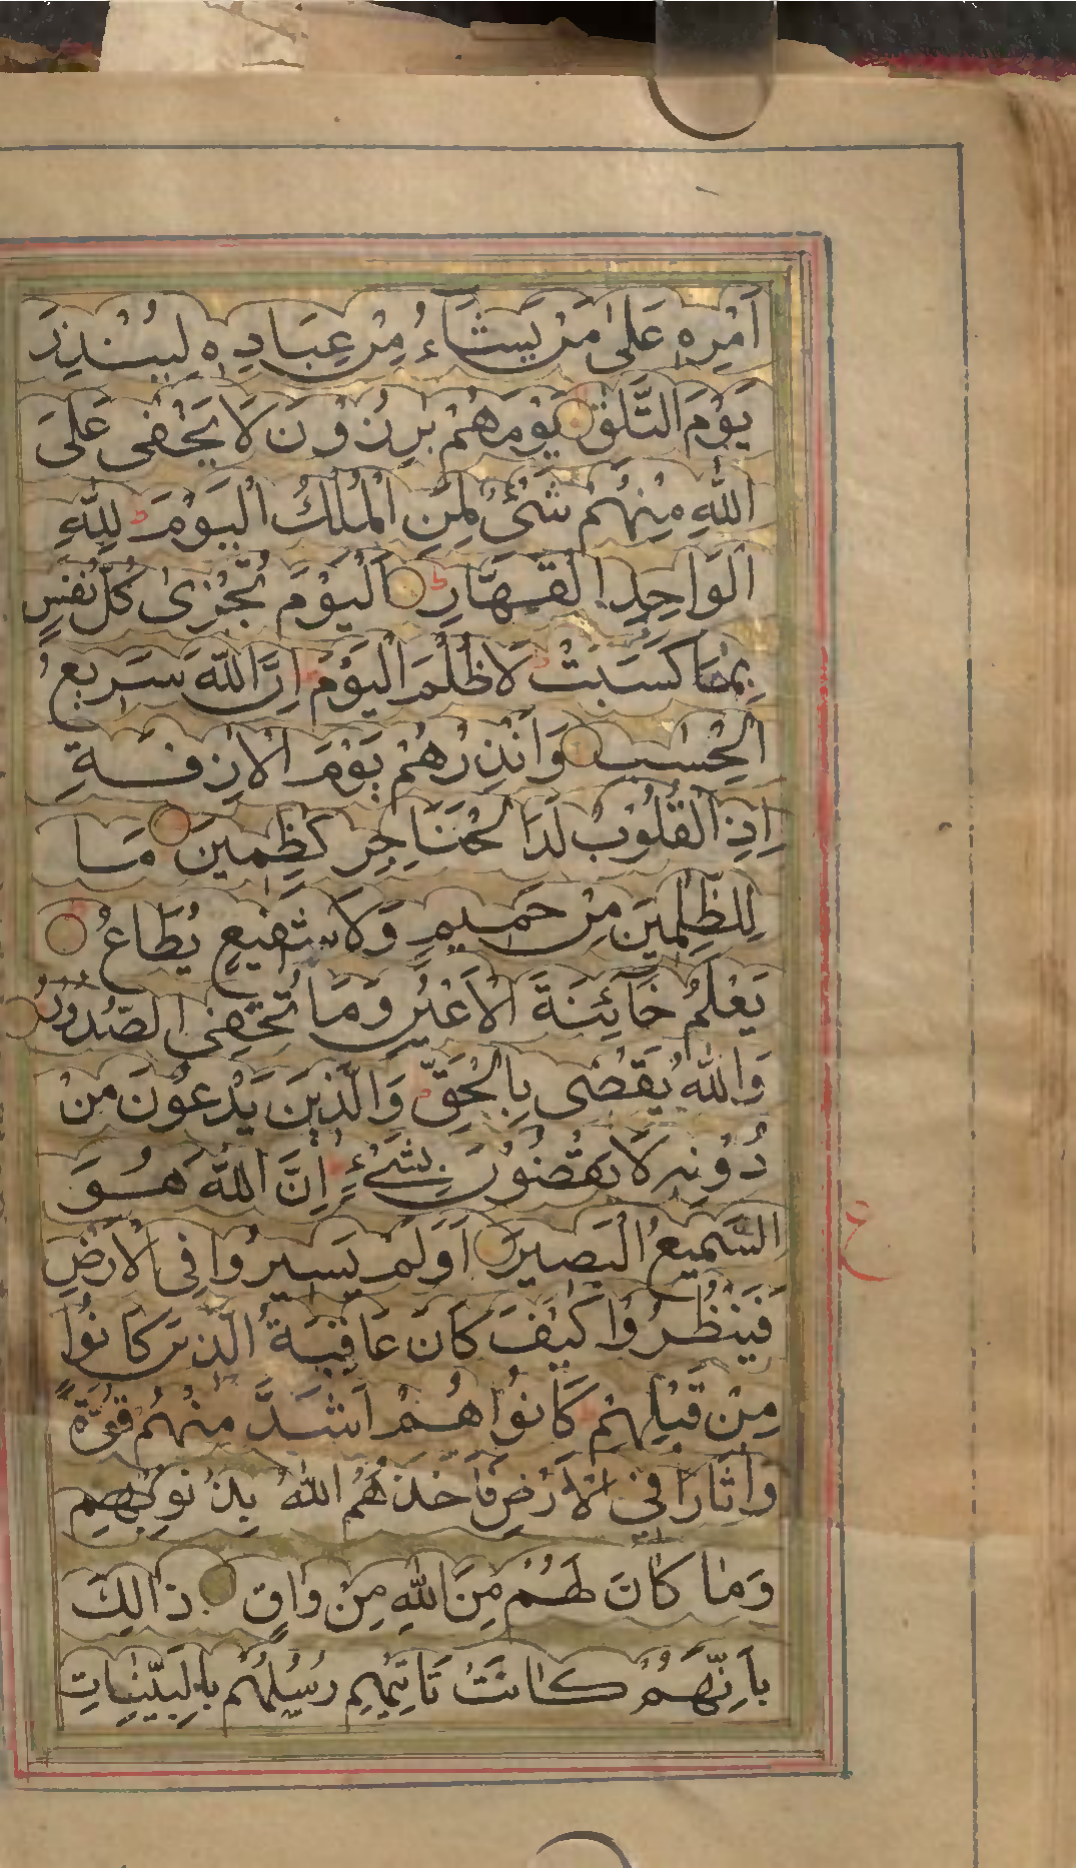 اَمْرِهٖ عَلٰى مَنْ يَّشَآءُ مِنْ عِبَادِهٖ لِيُنْذِرَ
يَوْمَ التَّلَاقِ يَوْمَ هُمْ بٰرِزُوْنَ لَا يَخْفٰى عَلَى
اللّٰهِ مِنْهُمْ شَىْءٌ لِمَنِ الْمُلْكُ الْيَوْمَ ط لِلّٰهِ
الْوَاحِدِ الْقَهَّارِ ط اَلْيَوْمَ تُجْزٰى كُلُّ نَفْسٍ
بِمَا كَسَبَتْ لَا ظُلْمَ الْيَوْمَ اِنَّ اللّٰهَ سَرِيْعُ
الْحِسٰبِ وَاَنْذِرْهُمْ يَوْمَ الْاٰزِفَةِ
اِذِ الْقُلُوْبُ لَدَا لْحَنَاجِرِ كٰظِمِيْنَ مَا
لِلظّٰلِمِيْنَ مِنْ حَمِيْمٍ وَّلَا شَفِيْعٍ يُّطَاعُ
يَعْلَمُ خَآئِنَةَ الْاَعْيُنِ وَمَا تُخْفِى الصُّدُوْرُ
وَاللّٰهُ يَقْضِى بِالْحَقِّ وَالَّذِيْنَ يَدْعُوْنَ مِنْ
دُوْنِهٖ لَا يَقْضُوْنَ بِشَىْءٍ اِنَّ اللّٰهَ هُوَ
السَّمِيْعُ الْبَصِيْرُ اَوَلَمْ يَسِيْرُوْا فِى الْاَرْضِ
ع
فَيَنْظُرُوْا كَيْفَ كَانَ عَاقِبَةُ الَّذِيْنَ كَانُوْا
مِنْ قَبْلِهِمْ كَانُوْا هُمْ اَشَدَّ مِنْهُمْ قُوَّةً
وَاٰثَارًا فِى الْاَرْضِ فَاَخَذَهُمُ اللّٰهُ بِذُنُوْبِهِمْ
وَمَا كَانَ لَهُمْ مِنَ اللّٰهِ مِنْ وَاقٍ ذَالِكَ
بِاَنَّهُمْ كَانَتْ تَاْتِيْهِمْ رُسُلُهُمْ بِالْبَيِّنَاتِ